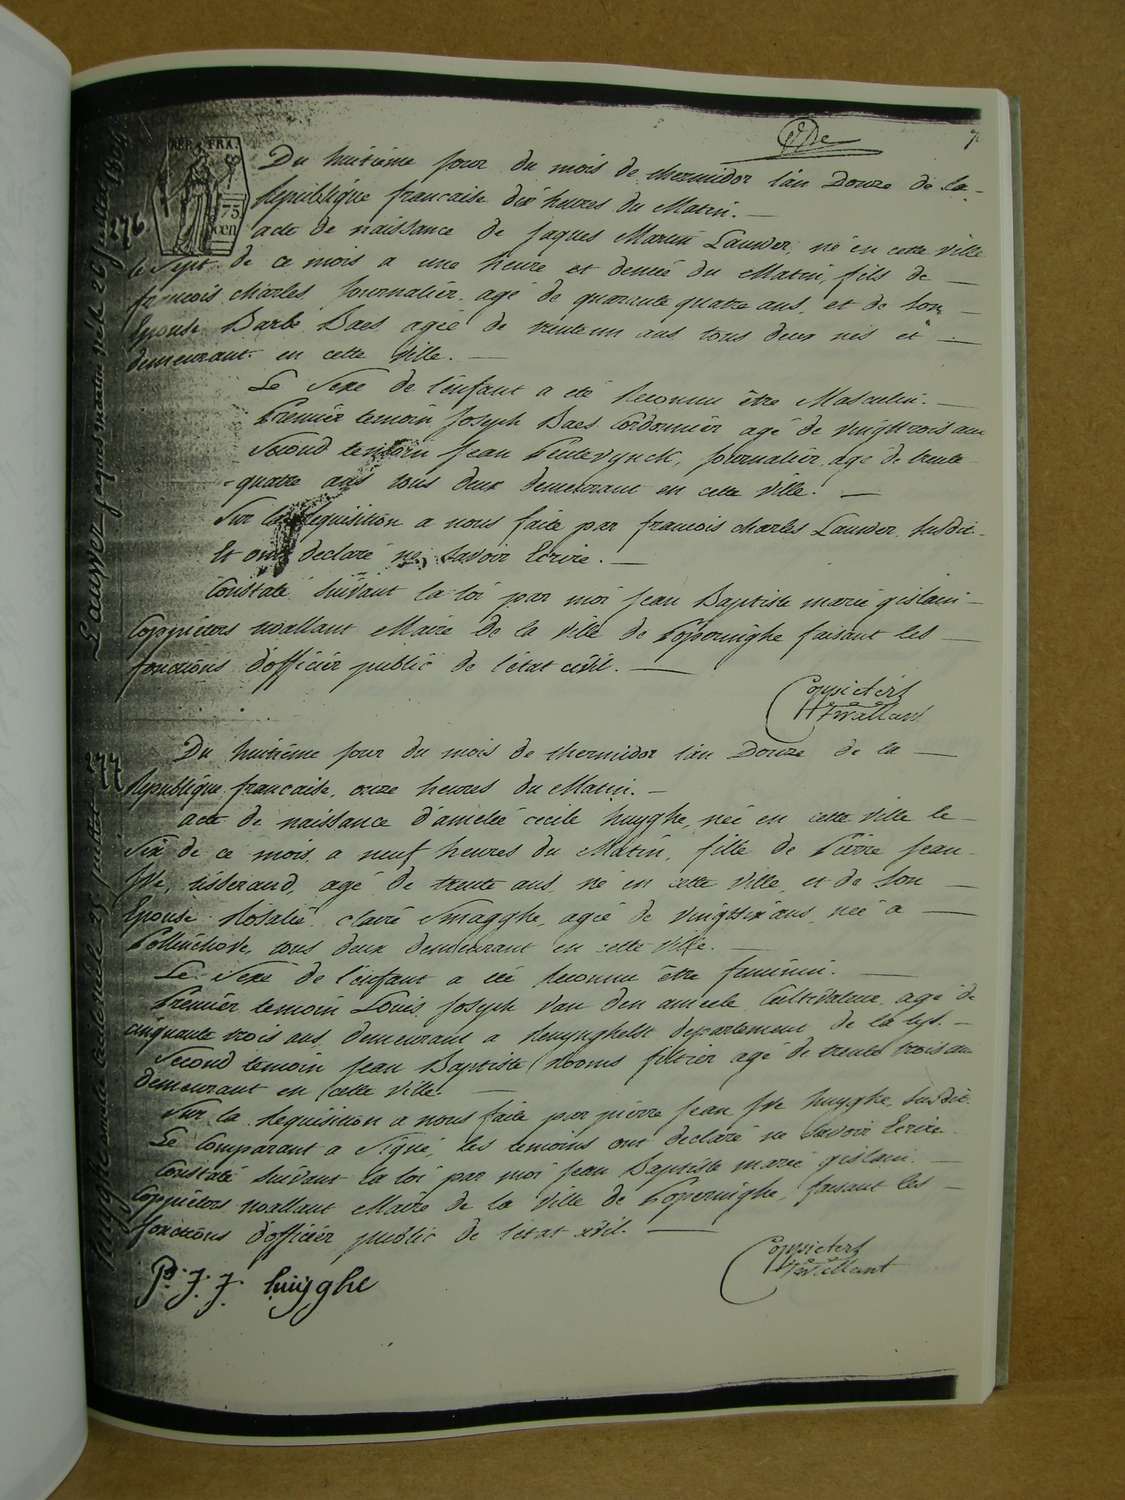 7.
REP. FRA.
75
cen
276
Du huitième jour du mois de thermidor l'an Douze de la
Republique francaise dix heures du Matin.
acte de naissance de Jaques Martin Lauwer, né en cette ville
le sept de ce mois a une heure et demie du Matin, fils de
francois charles journalier, agé de quarante quatre ans, et de son
Epouse Barbe Baes agée de trente un ans tous deux nés et
demeurant en cette ville.
Le Sexe de l'enfant a été Reconnu être Masculin.
Premier temoin Joseph Baes Cordonnier agé de vingt trois ans
Second temoin Jean journalier, agé de trente
quatre ans tous deux demeurant en cette ville.
Sur la Requisition a nous faite par francois charles Lauwer susdit.
Et ont declaré ne savoir Ecrire.
Constaté suivant la loi par moi Jean Baptiste marie gislain
Coppieters wallant Maire de la ville de Poperinghe faisant les
fonctions d'officier public de l'état civil.
Coppieters
twallant
277
Du huitième jour du mois de thermidor l'an Douze de la
Republique francaise, onze heures du Matin.
acte de naissance d'amelie cecile huyghe, née en cette ville le
six de ce mois, a neuf heures du Matin, fille de Pierre Jean
Jve, tisserand, agé de trente ans, né en cette ville, et de son
Epouse Rosalie claire Smagghe, agée de vingt six ans, née a
Pollinchove, tous deux demeurant en cette ville.
Le Sexe de l'enfant a été Reconnu être feminin.
Premier temoin Louis Joseph van den ameele Cultivateur, agé de
cinquante trois ans, demeurant a Renynghelst departement de la lys.
Second temoin Jean Baptiste Rooms agé de trente trois ans
demeurant en cette ville.
Sur la Requisition a nous faite par pierre Jean Jve huyghe, susdit.
Le Comparant a signé, les temoins ont declaré ne savoir Ecrire.
Constaté suivant la loi par moi Jean Baptiste marie gislain
Coppieters wallant Maire de la ville de Poperinghe, faisant les
fonctions d'officier public de l'état civil.
P. J. J. huyghe
Coppieters
twallant